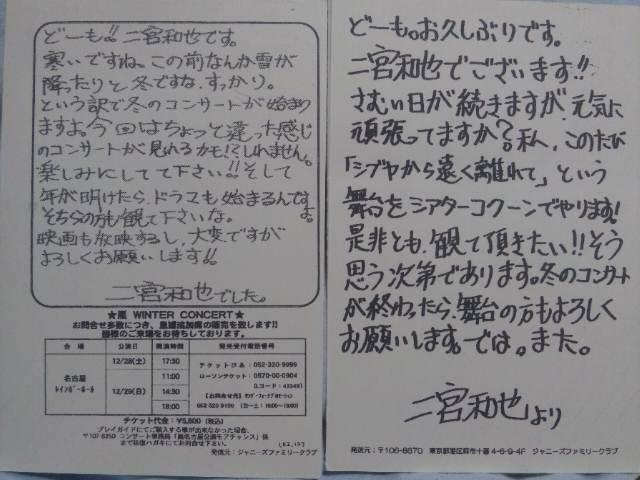 どーも!!二宮和也です。
寒いですね。この前なんか雪が
降ったりと、冬ですな、すっかり。
という訳で冬のコンサートが始まり
ますよ。今回はちょっと違った感じ
のコンサートが見れるかも!?しれません。
楽しみにしてて下さい!!そして
年が明けたら、ドラマも始まるんですよ。
そちらの方も観て下さいな。
映画も放映するし、大変ですが
よろしくお願いします!!
二宮和也でした。
★嵐 WINTER CONCERT★
お問合せ多数につき、追加席の販売を致します!!
皆様のご来場をお待ちしております。
会場 公演日 開演時間 発売受付電話番号
名古屋
レインボーホール
12/28(土) 17:30
12/29(日) 11:00
14:30
18:00
チケットぴあ:052-320-9999
ローソンチケット:0570-00-0904
チケット代金:¥5,800(税込)
プレイガイドにてご購入する事が出来なかった場合、
まで往復ハガキにてお問合せ下さい。
発信元:ジャニーズファミリークラブ
どーも。お久しぶりです。
二宮和也でございます!!
さむい日が続きますが、元気に
頑張ってますか?私、このたび
「シブヤから遠く離れて」という
舞台をシアターコクーンでやります!
是非とも、観て頂きたい!!そう
思う次第であります。冬のコンサート
が終わったら、舞台の方もよろしく
お願いします。では。また。
二宮和也より
発信元:〒106-8670 東京都港区麻布十番4-6-9-4F ジャニーズファミリークラブ